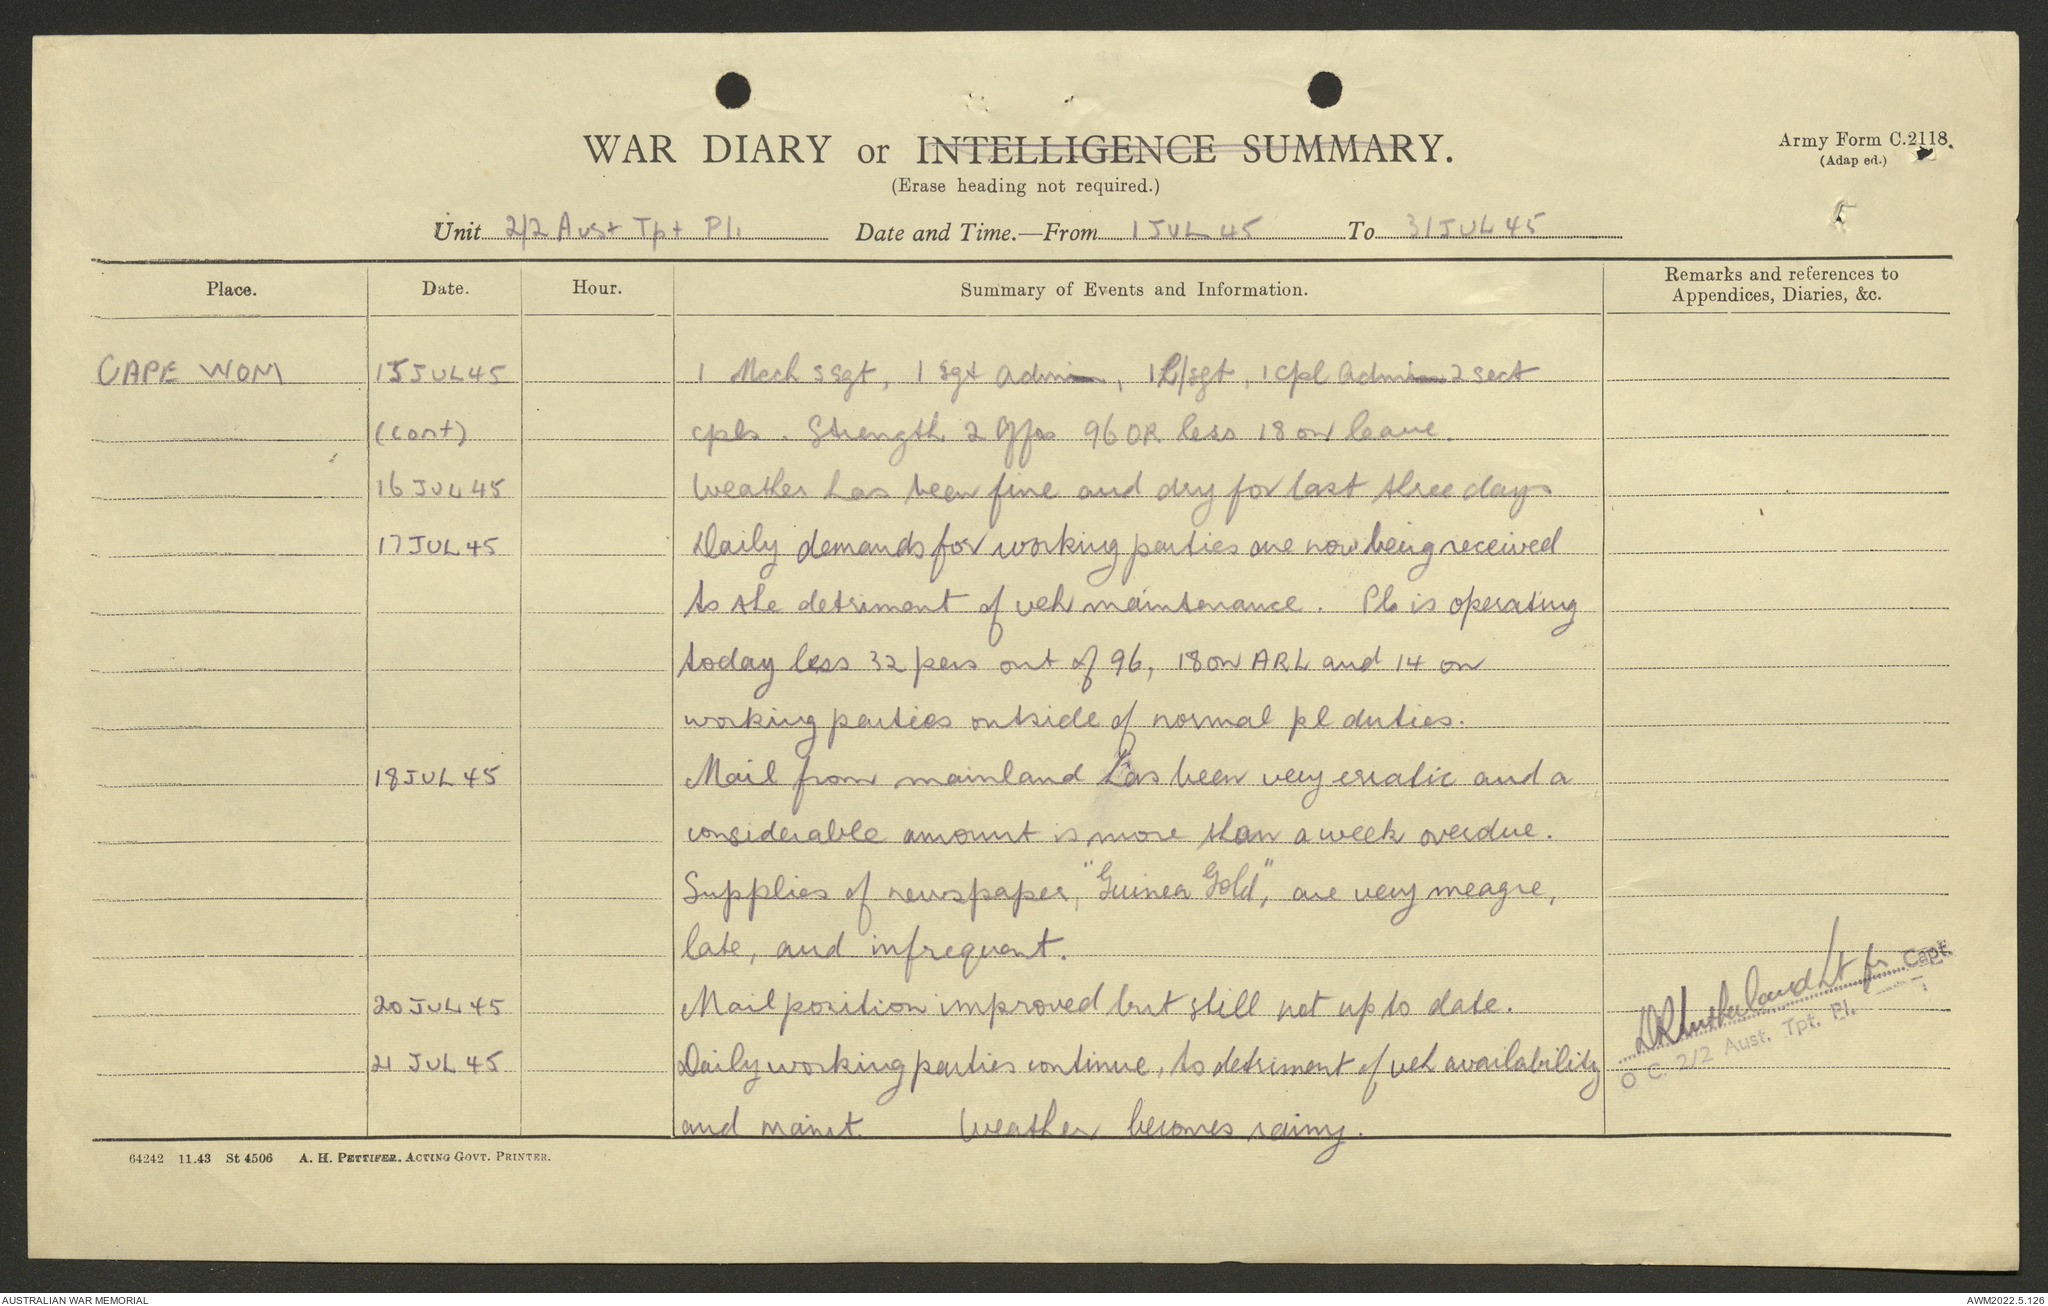 WAR DIARY or INTELLIGENCE SUMMARY.
(Erase heading not required.)
Army Form C.2118.
(Adap ed.)
5
Unit 2/2 Aust Tpt Pl. Date and Time.—From 1 JUL 45 To 31 JUL 45
Place. Date. Hour. Summary of Events and Information. Remarks and references to
Appendices, Diaries, &c.
CAPE WOM 15 JUL 45 1 Mech s sgt, 1 sgt admin, 1 L/sgt, 1 cpl admin 2 sect
(cont) cpls. Strength 2 Offrs 96 OR less 18 on leave.
16 JUL 45 Weather has been fine and dry for last three days
17 JUL 45 Daily demands for working parties are now being received
to the detriment of veh maintenance. Pl is operating
today less 32 pers out of 96, 18 on ARL and 14 on
working parties outside of normal pl duties.
18 JUL 45 Mail from mainland has been very erratic and a
considerable amount is more than a week overdue.
Supplies of newspaper, "Guinea Gold", are very meagre,
late, and infrequent.
20 JUL 45 Mail position improved but still not up to date.
21 JUL 45 Daily working parties continue, to detriment of veh availability
and maint. Weather becomes rainy.
DR Sutherland Lt for Capt.
O C. 2/2 Aust. Tpt. Pl.
64242 11.43 St 4506 A. H. PETTIFER. ACTING GOVT. PRINTER.
AUSTRALIAN WAR MEMORIAL AWM2022.5.126